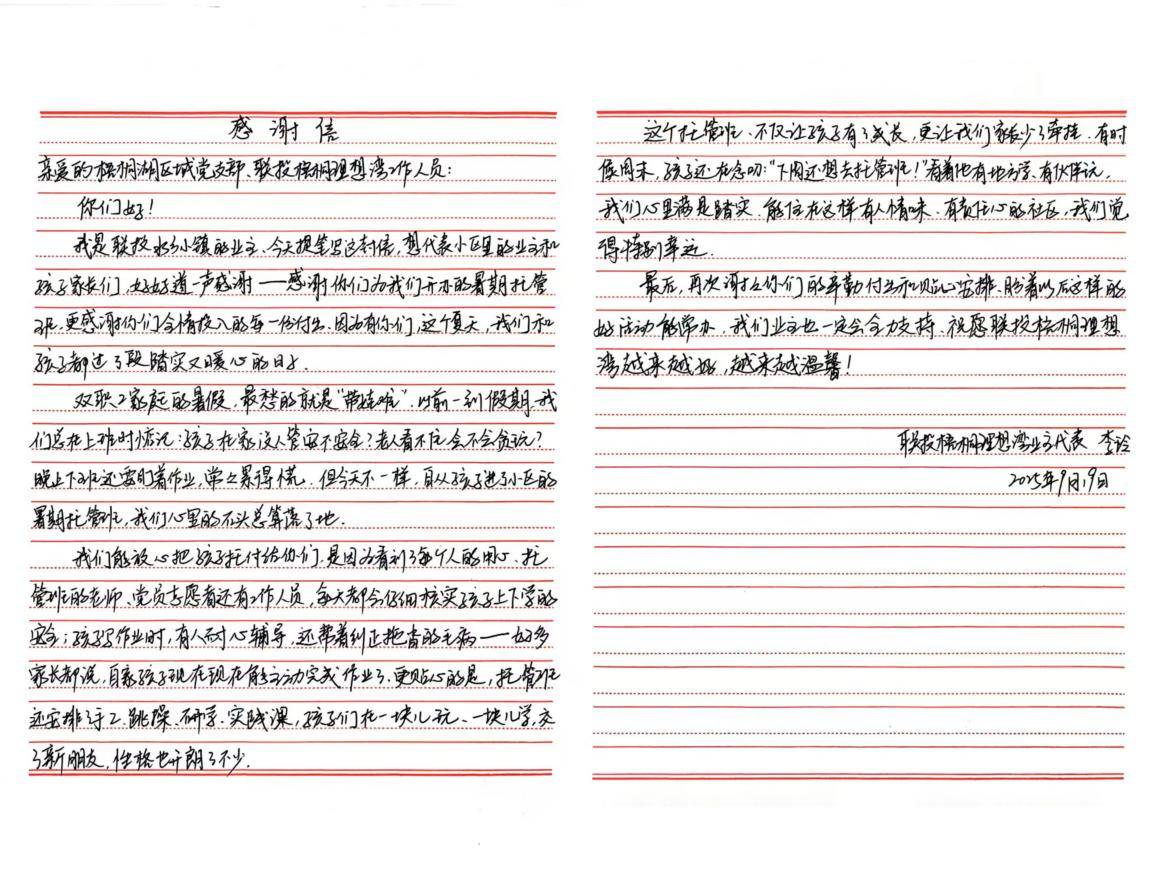 感谢信
亲爱的梧桐湖区域党支部、联投梧桐理想湾工作人员：
你们好！
我是联投水乡小镇的业主，今天提笔写这封信，想代表小区里的业主和
孩子家长们，好好道一声感谢——感谢你们为我们开办的暑期托管
班，更感谢你们全情投入的每一份付出。因为有你们，这个夏天，我们和
孩子都过了段踏实又暖心的日子。
双职工家庭的暑假，最愁的就是“带娃难”。以前一到假期，我
们总在上班时惦记：孩子在家没人管安不安全？老人看不住会不会贪玩？
晚上下班还要盯着作业，常常累得慌。但今天不一样，自从孩子进了小区的
暑期托管班，我们心里的石头总算落了地。
我们能放心把孩子托付给你们，是因为看到了每个人的用心。托
管班的老师、党员志愿者还有工作人员，每天都会仔细核实孩子上下学的
安全；孩子写作业时，有人耐心辅导，还帮着纠正拖沓的毛病——好多
家长都说，自家孩子现在现在能主动完成作业了。更贴心的是，托管班
还安排了手工、跳操、研学、实践课，孩子们在一块儿玩、一块儿学，交
了新朋友，性格也开朗了不少。
这个托管班，不仅让孩子有了成长，更让我们家长少了牵挂。有时
候周末，孩子还在念叨：“下周还想去托管班！”看着他有地方学、有伙伴玩，
我们心里满是踏实。能住在这样有人情味、有责任心的社区，我们觉
得特别幸运。
最后，再次谢谢你们的辛勤付出和贴心安排。盼着以后这样的
好活动能常办，我们业主也一定会全力支持。祝愿联投梧桐理想
湾越来越好，越来越温馨！
联投梧桐理想湾业主代表 李玲
2025年9月19日